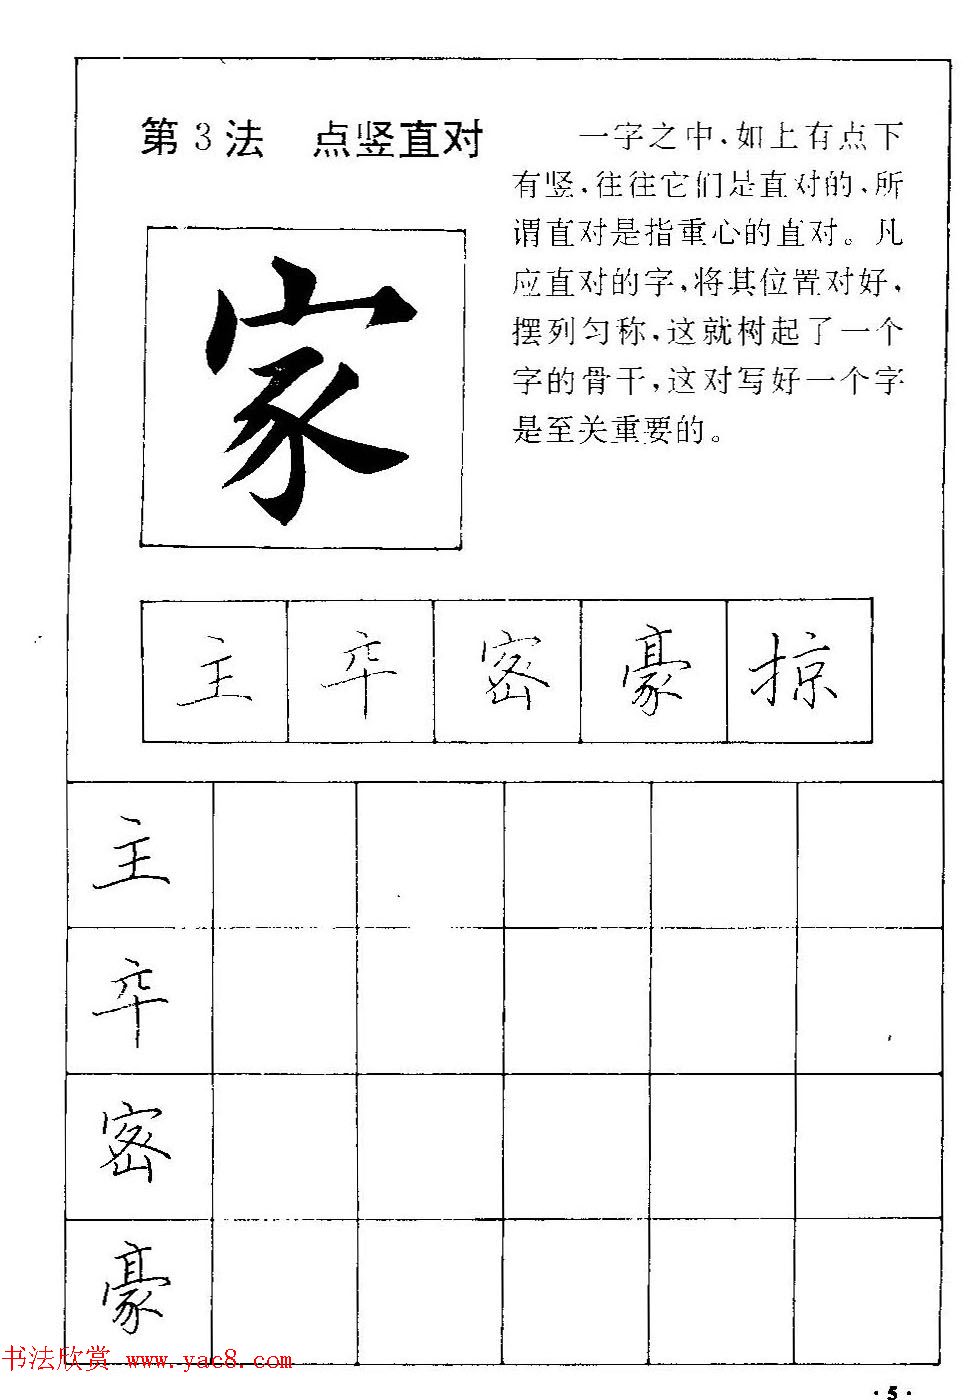 第3法 点竖直对
一字之中,如上有点下
有竖,往往它们是直对的,所
谓直对是指重心的直对。凡
应直对的字,将其位置对好,
摆列匀称,这就树起了一个
字的骨干,这对写好一个字
是至关重要的。
家
主 卒 密 豪 掠
主
卒
密
豪
书法欣赏 www.yac8.com
·5·